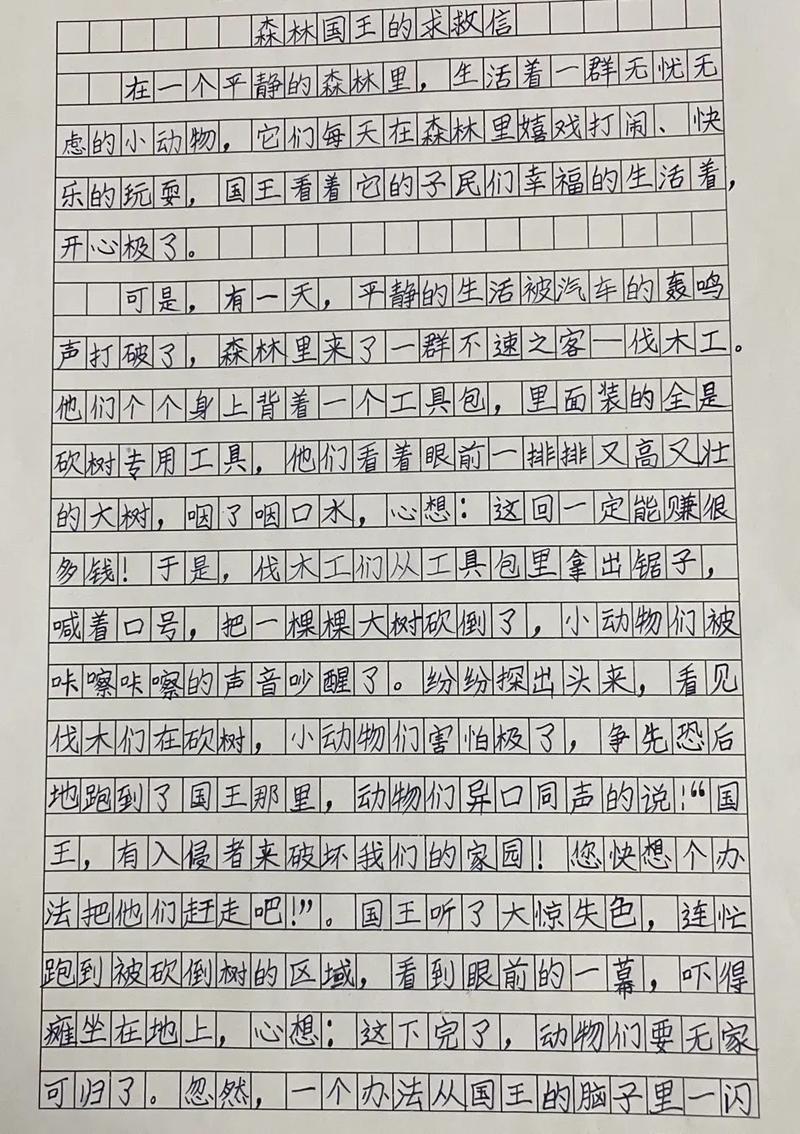 森林国王的求救信
在一个平静的森林里，生活着一群无忧无
虑的小动物，它们每天在森林里嬉戏打闹、快
乐的玩耍，国王看着它的子民们幸福的生活着，
开心极了。
可是，有一天，平静的生活被汽车的轰鸣
声打破了，森林里来了一群不速之客—伐木工。
他们个个身上背着一个工具包，里面装的全是
砍树专用工具，他们看着眼前一排排又高又壮
的大树，咽了咽口水，心想：这回一定能赚很
多钱！于是，伐木工们从工具包里拿出锯子，
喊着口号，把一棵棵大树砍倒了，小动物们被
咔嚓咔嚓的声音吵醒了。纷纷探出头来，看见
伐木们在砍树，小动物们害怕极了，争先恐后
地跑到了国王那里，动物们异口同声的说：“国
王，有入侵者来破坏我们的家园！您快想个办
法把他们赶走吧！”。国王听了大惊失色，连忙
跑到被砍倒树的区域，看到眼前的一幕，吓得
瘫坐在地上，心想：这下完了，动物们要无家
可归了。忽然，一个办法从国王的脑子里一闪